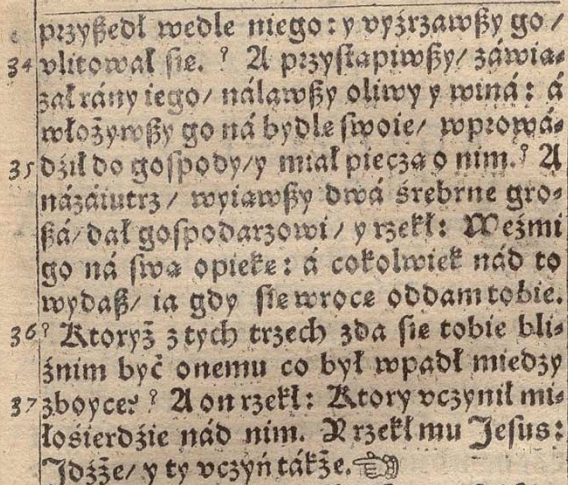 przyßedł wedle niego: y vyźrzawßy go /
34 vlitował się. ? A przystąpiwßy / záwią⸗
zał rány iego / nálawßy oliwy y winá: á
włożywßy go ná bydlę swoie / wprowá⸗
35 dźił do gospody / y miał pieczą o nim. ? A
názáiutrz / wyiąwßy dwá srebrne gro⸗
ßá / dał gospodarzowi / y rzekł: Weźmi
go ná swą opiekę: á cokolwiek nád to
wydaß / ia gdy się wrocę oddam tobie.
36 ? Ktoryż z tych trzech zda się tobie bli⸗
źnim być onemu co był wpadł miedzy
37 zboyce? ? A on rzekł: Ktory vczynił mi⸗
łośierdźie nád nim. Y rzekł mu Jesus:
Jdźże / y ty vczyń tákże. ☜